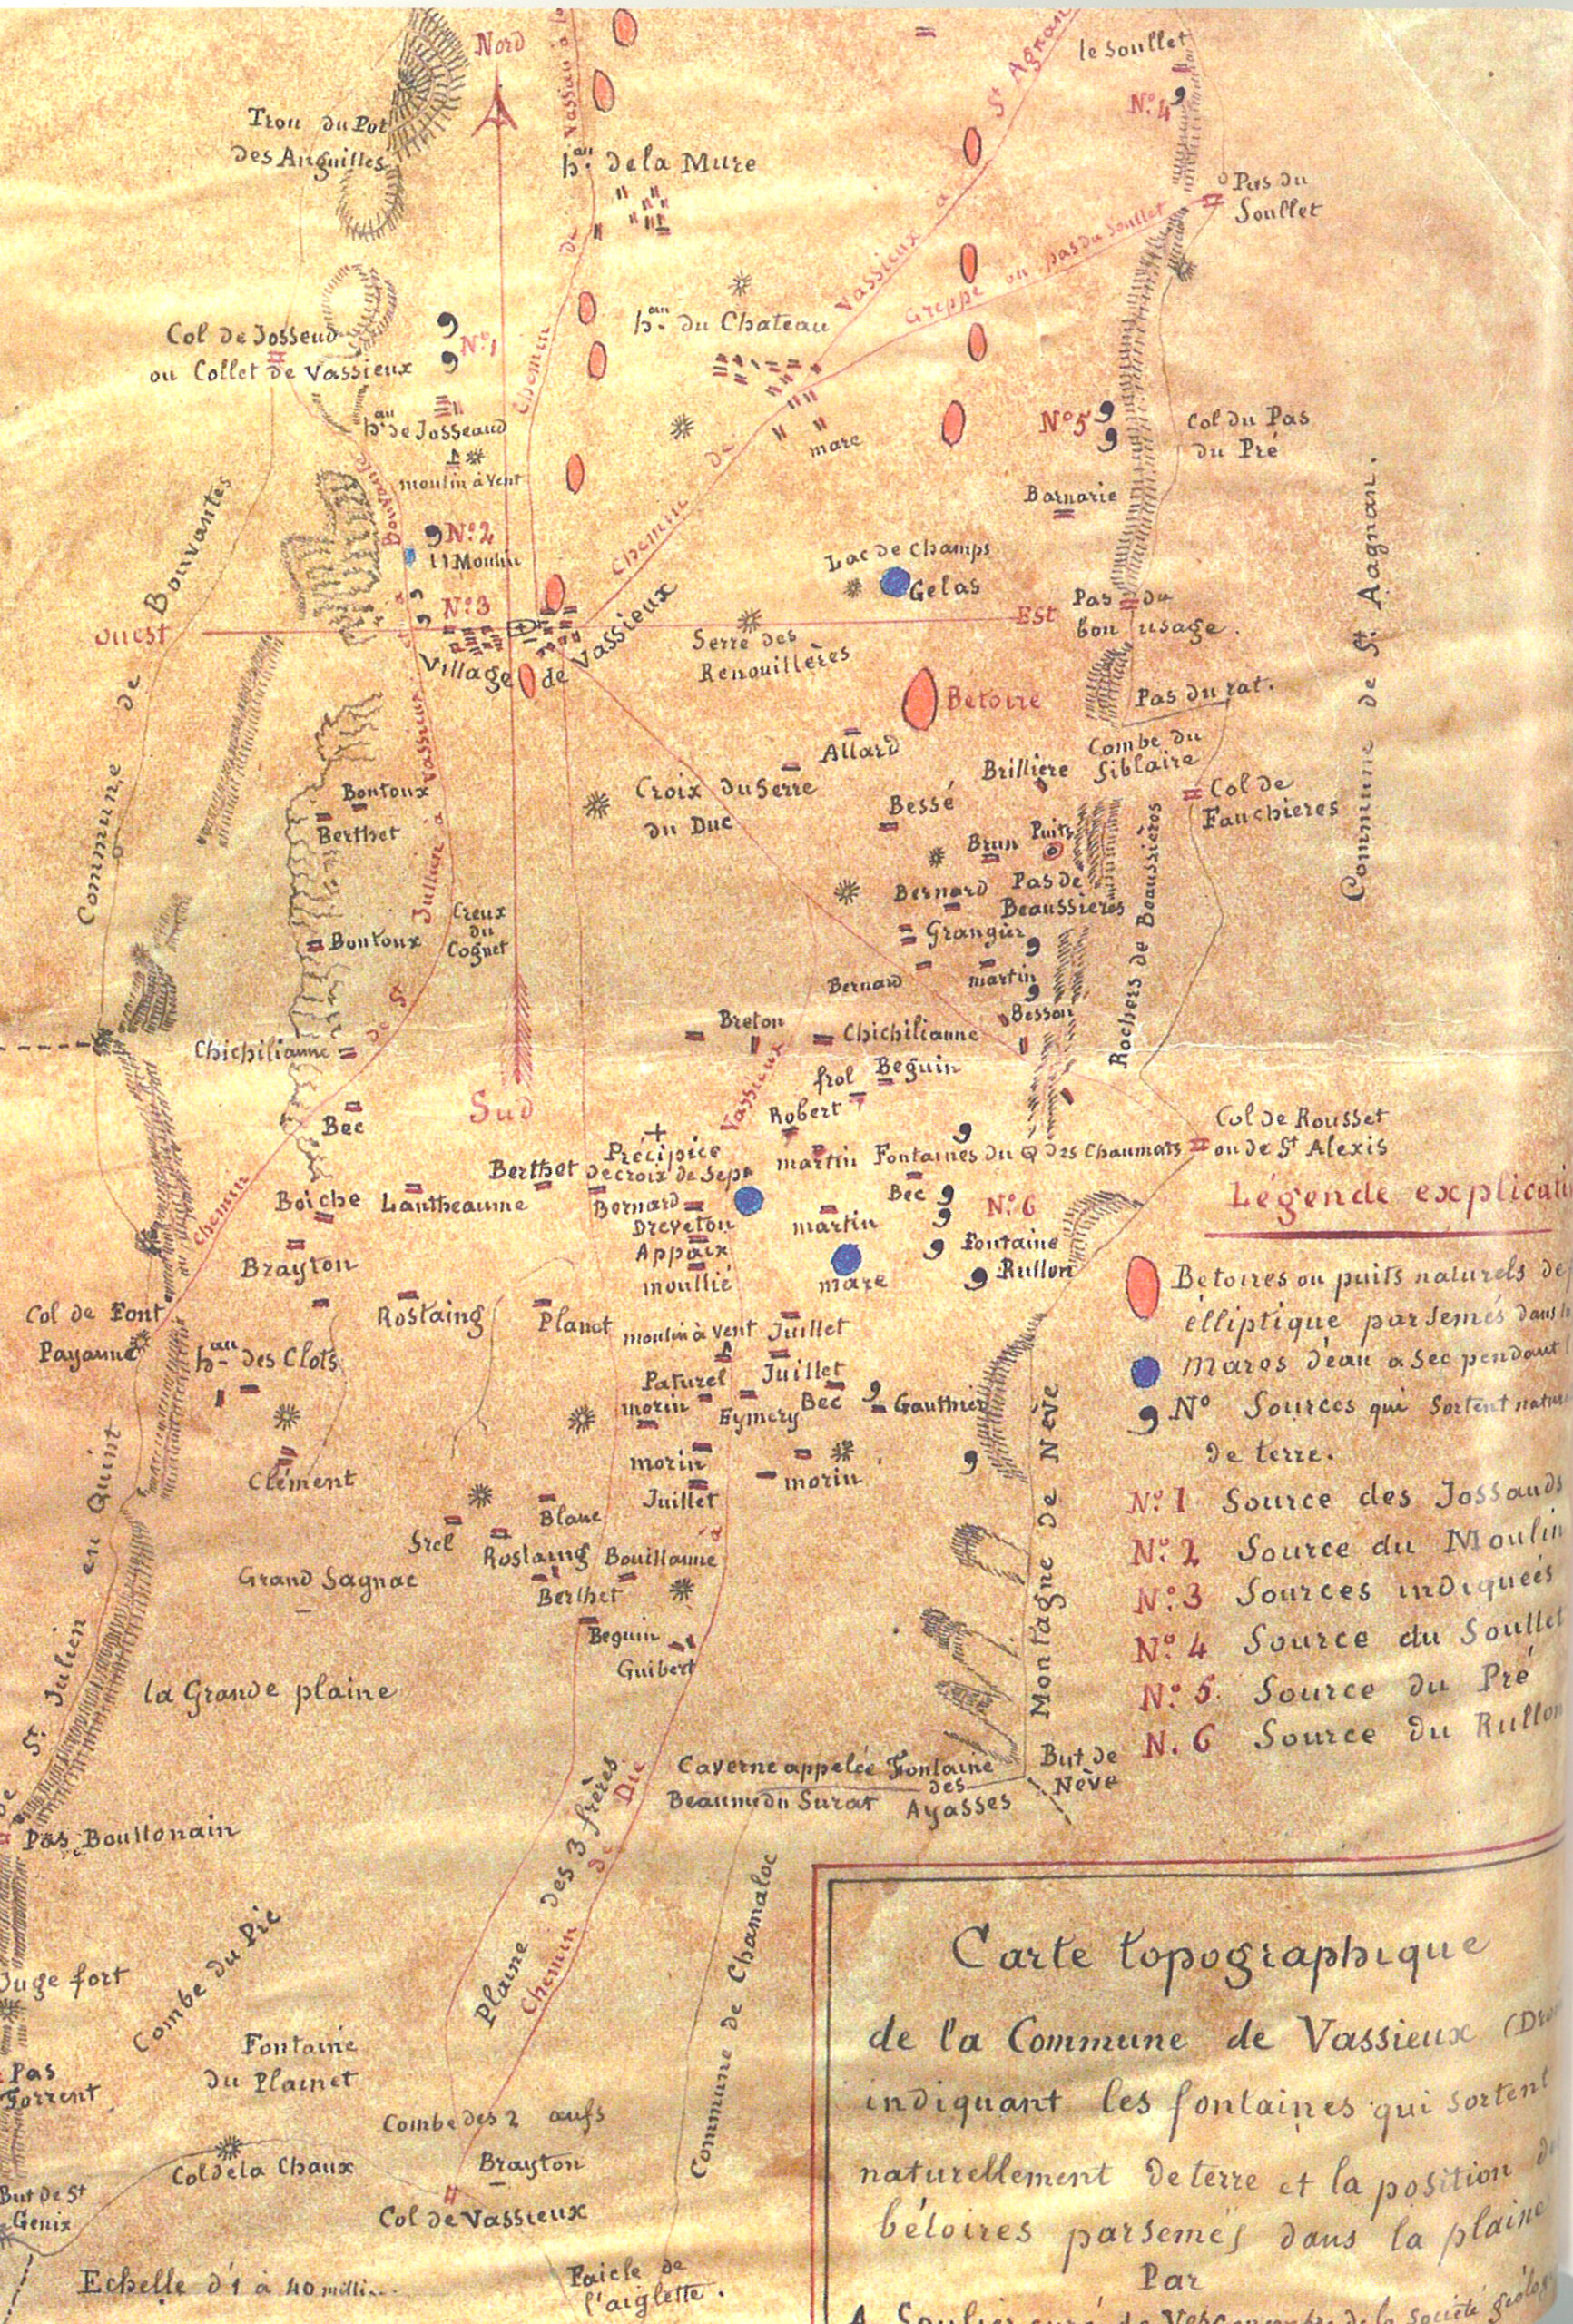 Nord
le Soullet
St Agnan
N° 4
Trou du Pot
des Anguilles
hau de la Mure
Pas du
Soullet
Chemin de Vassieux à la
Chemin de Vassieux à
Greppe ou pas du Soullet
hau du Chateau
Col de Josseud
ou Collet de Vassieux
N° 1
hau de Josseaud
moulin à Vent
mare
N° 5
Col du Pas
du Pré
Barnarie
Bouvante
N° 2
11 Moulin
Lac de Champs
Gelas
N° 3
Ouest
Est
Pas du
bon usage.
Village de Vassieux
Serre des
Renouillères
Commune de Bouvantes
Commune de St. Aagnan.
Betoire
Pas du rat.
Allard
Combe du
Siblaire
Brillière
Croix du Serre
du Duc
Bessé
Col de
Fauchieres
Bontoux
Berthet
Puits
Brun
Bernard
Pas de
Beaussieres
Rochers de Beaussières
Grangier
Creux
du
Cognet
Bontoux
Bernard
martin
Besson
Breton
Chichilianne
Chichilianne
Beguin
frol
Robert
Vassieux
Sud
Bec
Chemin de St Jullien à Vassieux
Précipice
de croix de Sept
Berthet
martin
Fontaines du Q des Chaumats
Col de Rousset
ou de St Alexis
Boiche
Lantheaume
Bernard
Bec
N° 6
Dreveton
martin
Appaix
moullié
mare
Fontaine
Rullon
Brayton
Légende explicati
Betoires ou puits naturels de
élliptique parsemés dans
Mares d'eau a sec pendant
N° Sources qui sortent natur
de terre.
N° 1 Source des Jossauds
N° 2 Source du Moulin
N° 3 Sources indiquées
N° 4 Source du Soullet
N° 5. Source du Pré
N. 6 Source du Rullon
Col de Font
Payanne
Rostaing
Planet
moulin à vent
Juillet
hau des Clots
Juillet
Paturel
morin
Eymery
Bec
Gauthier
morin
morin
Clément
Juillet
Blanc
Srel
Rostaing
Bouillanne
Grand Sagnac
Berthet
Beguin
Guibert
St. Julien en Quint
la Grande plaine
Montagne de Nève
But de
Nève
Caverne appelée Fontaine
des
Beaume du Surat
Ayasses
Pas Boussonain
Plaine des 3 frères
Chemin de Die à
Commune de Chamaloc
Juge fort
Combe du Pic
Fontaine
du Plainet
Pas
Forrent
Combe des 2 aufs
Brayton
Col de la Chaux
Col de Vassieux
But de St
Genix
Echelle d'1 à 40 milli...
Faicle de
l'aiglette.
Carte topographique
de la Commune de Vassieux
indiquant les fontaines qui sortent
naturellement de terre et la position
béloires parsemés dans la plaine
Par